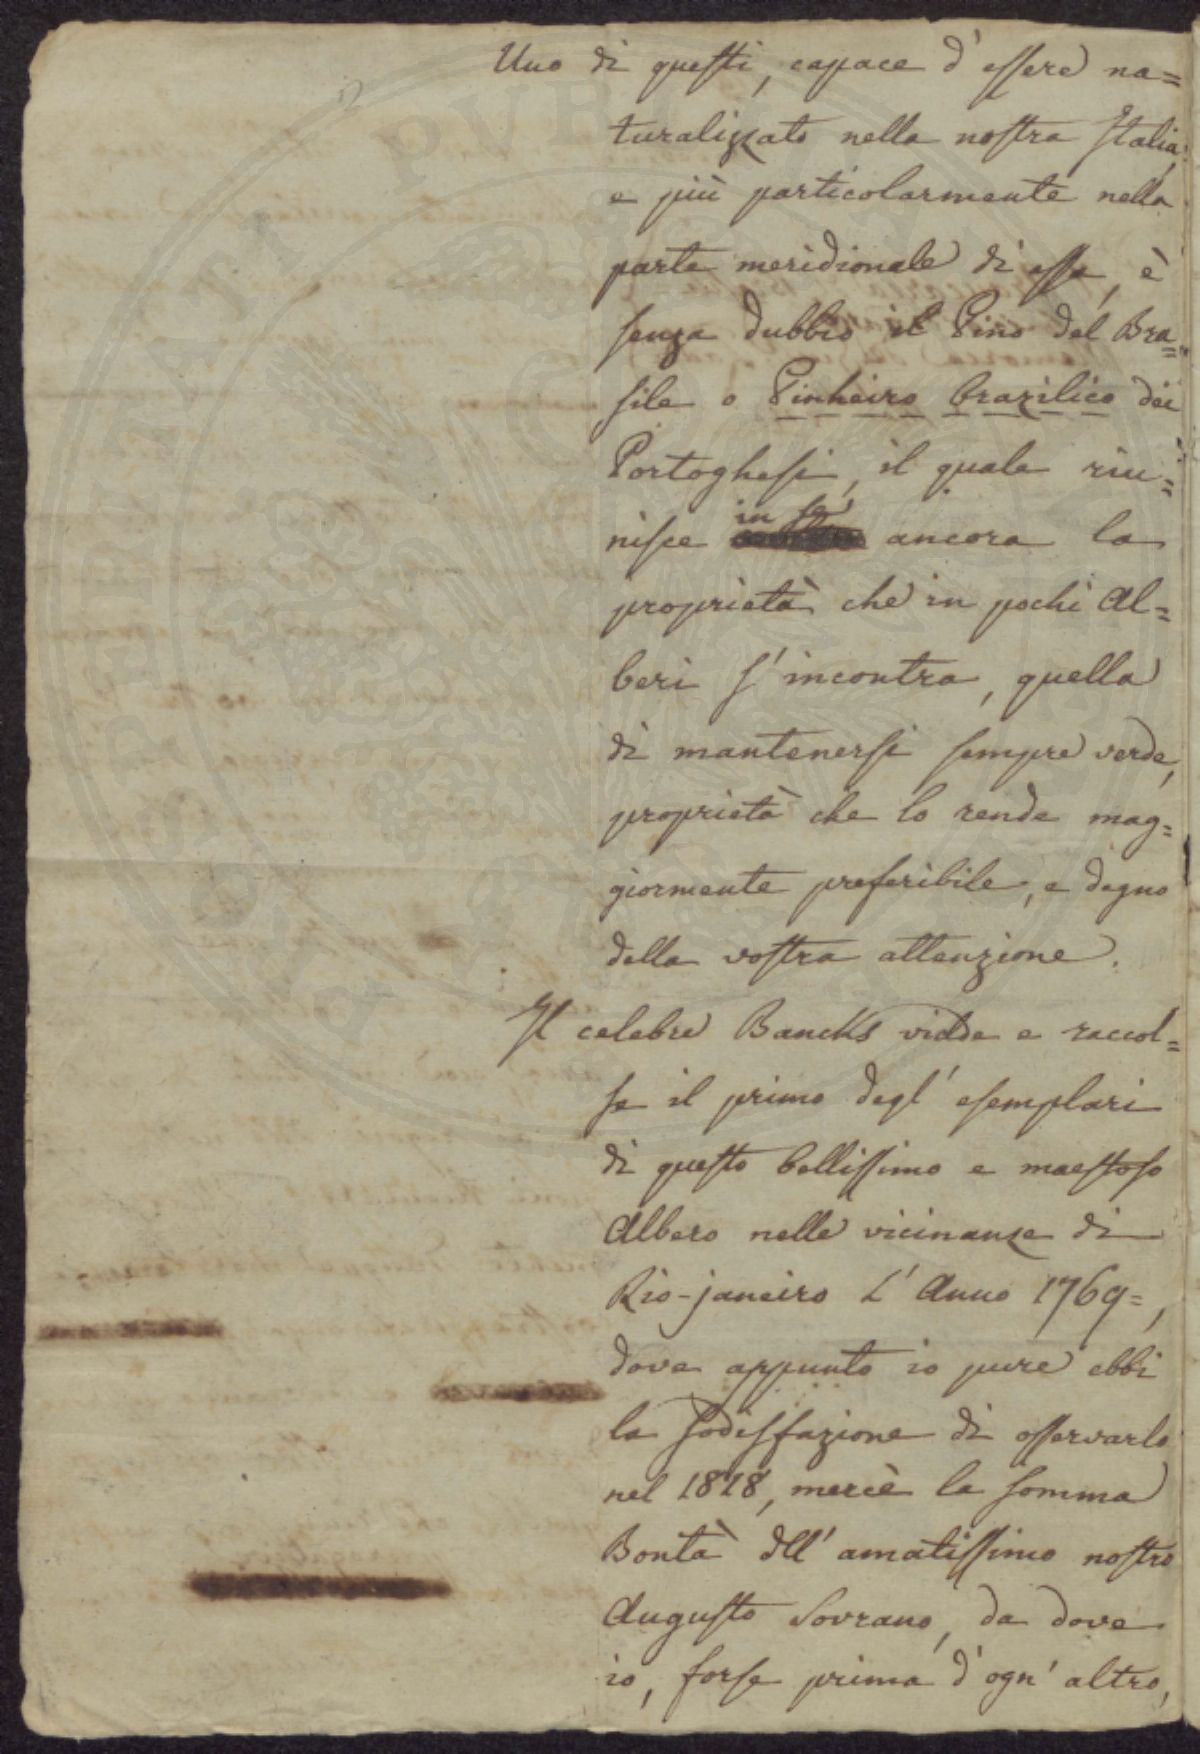 Uno di questi, capace d'essere na=
turalizzato nella nostra Italia,
e più particolarmente nella
parte meridionale di essa, è
senza dubbio il Pino del Bra=
sile o Pinheiro brazilico dei
Portoghesi, il quale riu=
nisce in se ancora la
proprietà che in pochi Al=
beri s'incontra, quella
di mantenersi sempre verde,
proprietà che lo rende mag=
giormente preferibile, e degno
della vostra attenzione.
Il celebre Bancks vidde e raccol=
se il primo degl'esemplari
di questo bellissimo e maestoso
Albero nelle vicinanze di
Rio-janeiro L'Anno 1769=,
dove appunto io pure ebbi
la sodisfazione di osservarlo
nel 1818, mercè la somma
Bontà dell'amatissimo nostro
Augusto Sovrano, da dove
io, forse prima d'ogn'altro,